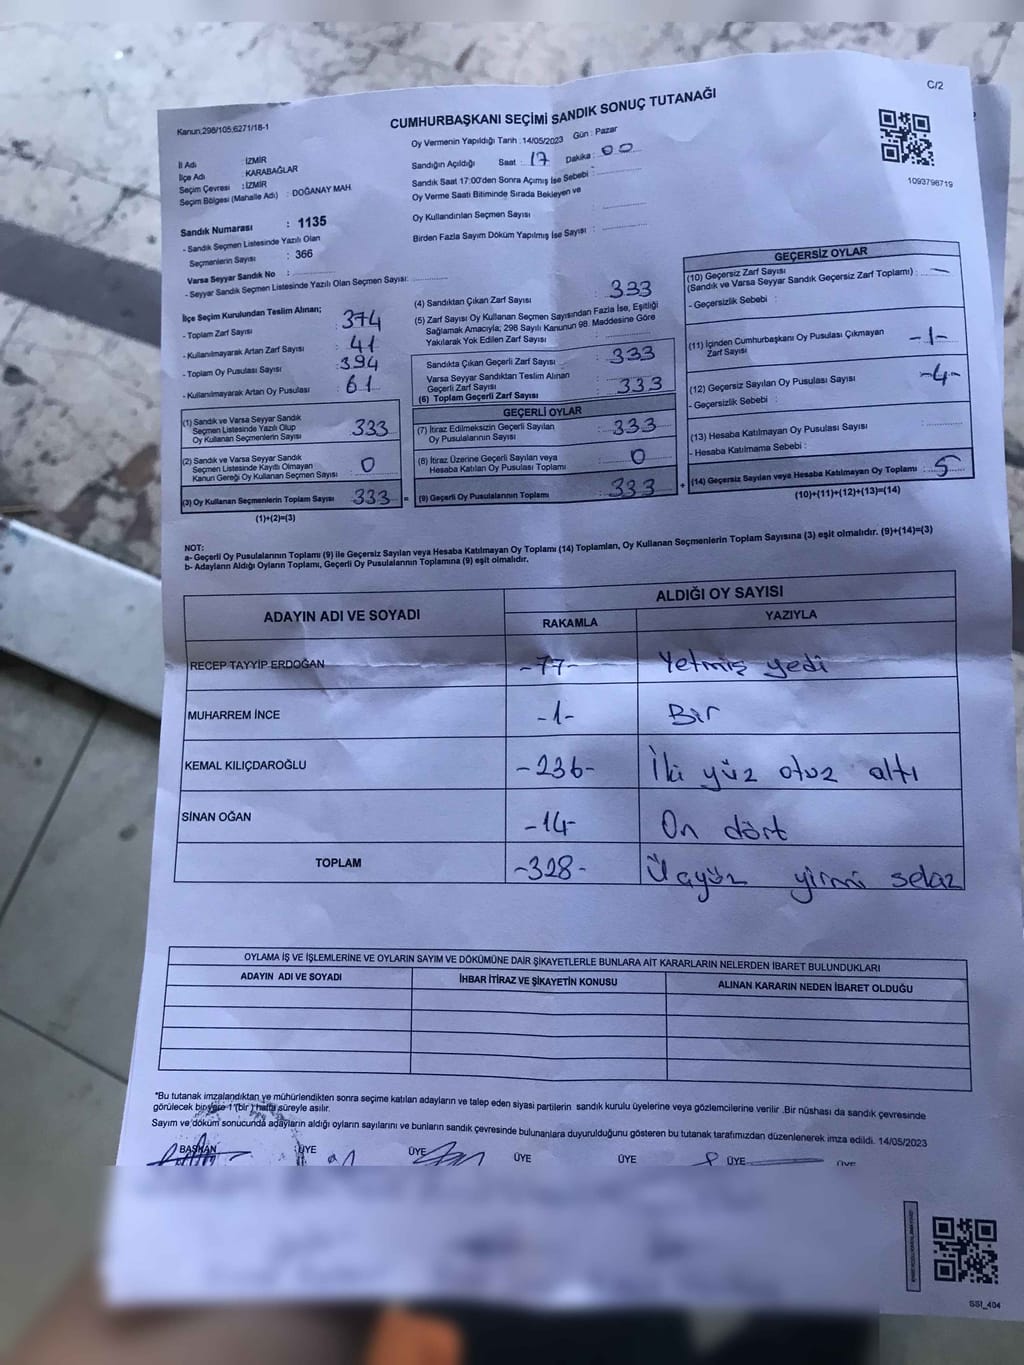 C/2
Kanun:298/105;6271/18-1
CUMHURBAŞKANI SEÇİMİ SANDIK SONUÇ TUTANAĞI
1093796719
İl Adı : İZMİR
İlçe Adı : KARABAĞLAR
Seçim Çevresi : İZMİR
Seçim Bölgesi (Mahalle Adı) : DOĞANAY MAH.
Sandık Numarası : 1135
- Sandık Seçmen Listesinde Yazılı Olan
Seçmenlerin Sayısı : 366
Varsa Seyyar Sandık No :
- Seyyar Sandık Seçmen Listesinde Yazılı Olan Seçmen Sayısı:
Oy Vermenin Yapıldığı Tarih : 14/05/2023 Gün : Pazar
Sandığın Açıldığı Saat : 17 Dakika : 00
Sandık Saat 17:00'den Sonra Açımış İse Sebebi :
Oy Verme Saati Bitiminde Sırada Bekleyen ve
Oy Kullandırılan Seçmen Sayısı :
Birden Fazla Sayım Döküm Yapılmış İse Sayısı :
İlçe Seçim Kurulundan Teslim Alınan;
- Toplam Zarf Sayısı : 374
- Kullanılmayarak Artan Zarf Sayısı : 41
- Toplam Oy Pusulası Sayısı : 394
- Kullanılmayarak Artan Oy Pusulası : 61
(1) Sandık ve Varsa Seyyar Sandık
Seçmen Listesinde Yazılı Olup
Oy Kullanan Seçmenlerin Sayısı : 333
(2) Sandık ve Varsa Seyyar Sandık
Seçmen Listesinde Kayıtlı Olmayan
Kanun Gereği Oy Kullanan Seçmen Sayısı : 0
(3) Oy Kullanan Seçmenlerin Toplam Sayısı : 333 =
(1)+(2)=(3)
(4) Sandıktan Çıkan Zarf Sayısı : 333
(5) Zarf Sayısı Oy Kullanan Seçmen Sayısından Fazla İse, Eşitliği
Sağlamak Amacıyla; 298 Sayılı Kanunun 98. Maddesine Göre
Yakılarak Yok Edilen Zarf Sayısı :
Sandıkta Çıkan Geçerli Zarf Sayısı : 333
Varsa Seyyar Sandıktan Teslim Alınan
Geçerli Zarf Sayısı :
(6) Toplam Geçerli Zarf Sayısı : 333
GEÇERLİ OYLAR
(7) İtiraz Edilmeksizin Geçerli Sayılan
Oy Pusulalarının Sayısı : 333
(8) İtiraz Üzerine Geçerli Sayılan veya
Hesaba Katılan Oy Pusulası Toplamı : 0
(9) Geçerli Oy Pusulalarının Toplamı : 333 +
GEÇERSİZ OYLAR
(10) Geçersiz Zarf Sayısı
(Sandık ve Varsa Seyyar Sandık Geçersiz Zarf Toplamı) : -
- Geçersizlik Sebebi :
(11) İçinden Cumhurbaşkanı Oy Pusulası Çıkmayan
Zarf Sayısı : -1-
(12) Geçersiz Sayılan Oy Pusulası Sayısı : -4-
- Geçersizlik Sebebi :
(13) Hesaba Katılmayan Oy Pusulası Sayısı :
- Hesaba Katılmama Sebebi :
(14) Geçersiz Sayılan veya Hesaba Katılmayan Oy Toplamı : 5
(10)+(11)+(12)+(13)=(14)
NOT:
a- Geçerli Oy Pusulalarının Toplamı (9) ile Geçersiz Sayılan veya Hesaba Katılmayan Oy Toplamı (14) Toplamları, Oy Kullanan Seçmenlerin Toplam Sayısına (3) eşit olmalıdır. (9)+(14)=(3)
b- Adayların Aldığı Oyların Toplamı, Geçerli Oy Pusulalarının Toplamına (9) eşit olmalıdır.
ADAYIN ADI VE SOYADI
ALDIĞI OY SAYISI
RAKAMLA YAZIYLA
RECEP TAYYİP ERDOĞAN -77- Yetmiş yedi
MUHARREM İNCE -1- Bir
KEMAL KILIÇDAROĞLU -236- İki yüz otuz altı
SİNAN OĞAN -14- On dört
TOPLAM -328- Üçyüz yirmi sekiz
OYLAMA İŞ VE İŞLEMLERİNE VE OYLARIN SAYIM VE DÖKÜMÜNE DAİR ŞİKAYETLERLE BUNLARA AİT KARARLARIN NELERDEN İBARET BULUNDUKLARI
ADAYIN ADI VE SOYADI İHBAR İTİRAZ VE ŞİKAYETİN KONUSU ALINAN KARARIN NEDEN İBARET OLDUĞU
*Bu tutanak imzalandıktan ve mühürlendikten sonra seçime katılan adayların ve talep eden siyasi partilerin sandık kurulu üyelerine veya gözlemcilerine verilir .Bir nüshası da sandık çevresinde
görülecek bir yere 1 (bir) hafta süreyle asılır.
Sayım ve döküm sonucunda adayların aldığı oyların sayılarını ve bunların sandık çevresinde bulunanlara duyurulduğunu gösteren bu tutanak tarafımızdan düzenlenerek imza edildi. 14/05/2023
BAŞKAN ÜYE ÜYE ÜYE ÜYE ÜYE ÜYE
SSI_404